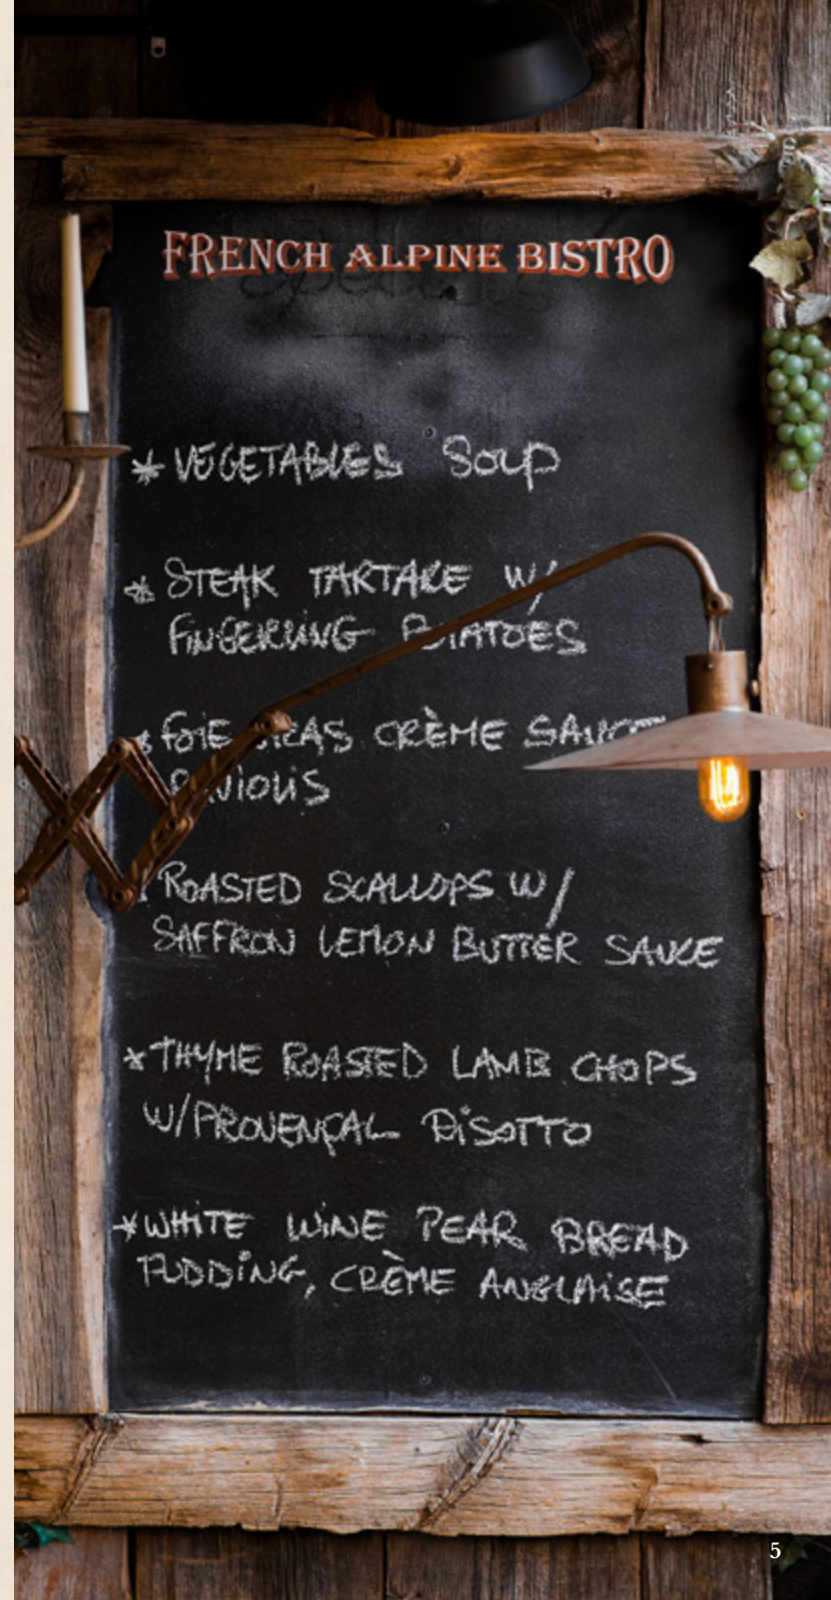 FRENCH ALPINE BISTRO
* VEGETABLES SOUP
* STEAK TARTARE W/
FINGERLING POTATOES
* FOIE GRAS CRÈME SAUCE
RAVIOLIS
ROASTED SCALLOPS W/
SAFFRON LEMON BUTTER SAUCE
* THYME ROASTED LAMB CHOPS
W/PROVENÇAL RISOTTO
* WHITE WINE PEAR BREAD
PUDDING, CRÈME ANGLAISE
5